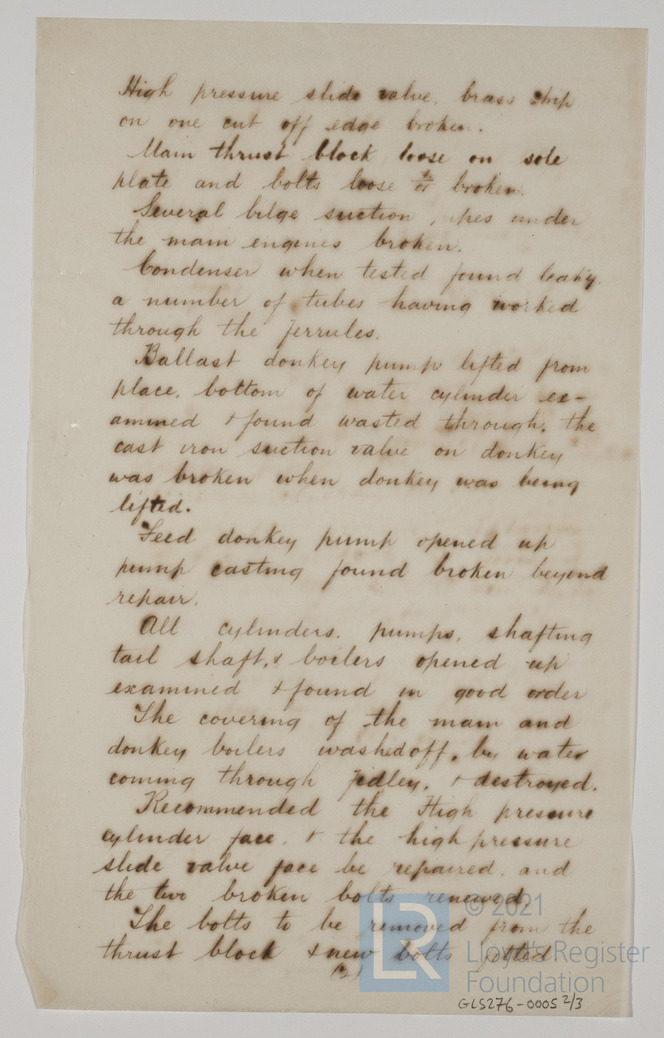 High pressure slide valve, brass strip
on one cut off edge broken.
Main thrust block loose on sole
plate and bolts loose & or broken.
Several bilge suction pipes under
the main engines broken.
Condenser when tested found leaky
a number of tubes having worked
through the ferrules.
Ballast donkey pump lifted from
place, bottom of water cylinder ex-
amined & found wasted through, the
cast iron suction valve on donkey
was broken when donkey was being
lifted.
Feed donkey pump opened up
pump casting found broken beyond
repair.
All cylinders, pumps, shafting
tail shaft, & boilers opened up
examined & found in good order
The covering of the main and
donkey boilers washed off, by water
coming through fidley, & destroyed.
Recommended the High pressure
cylinder face, & the high pressure
slide valve face be repaired, and
the two broken bolts renewed,
The bolts to be removed from the
thrust block & new bolts fitted
(2)
LR
© 2021
Lloyd's Register
Foundation
GLS276-0005 2/3